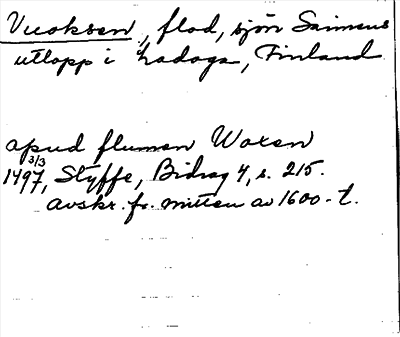 Vuoksen, flod, sjön Saimens
utlopp i Ladoga, Finland
apud flumen Woxen
3/3
1497, Styffe, Bidrag 4, s. 215.
avskr. fr. mitten av 1600-t.